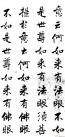 意云何如來有法眼不如
是世尊如來有法眼須菩
提於意云何如來有佛眼
不如是世尊如來有佛眼